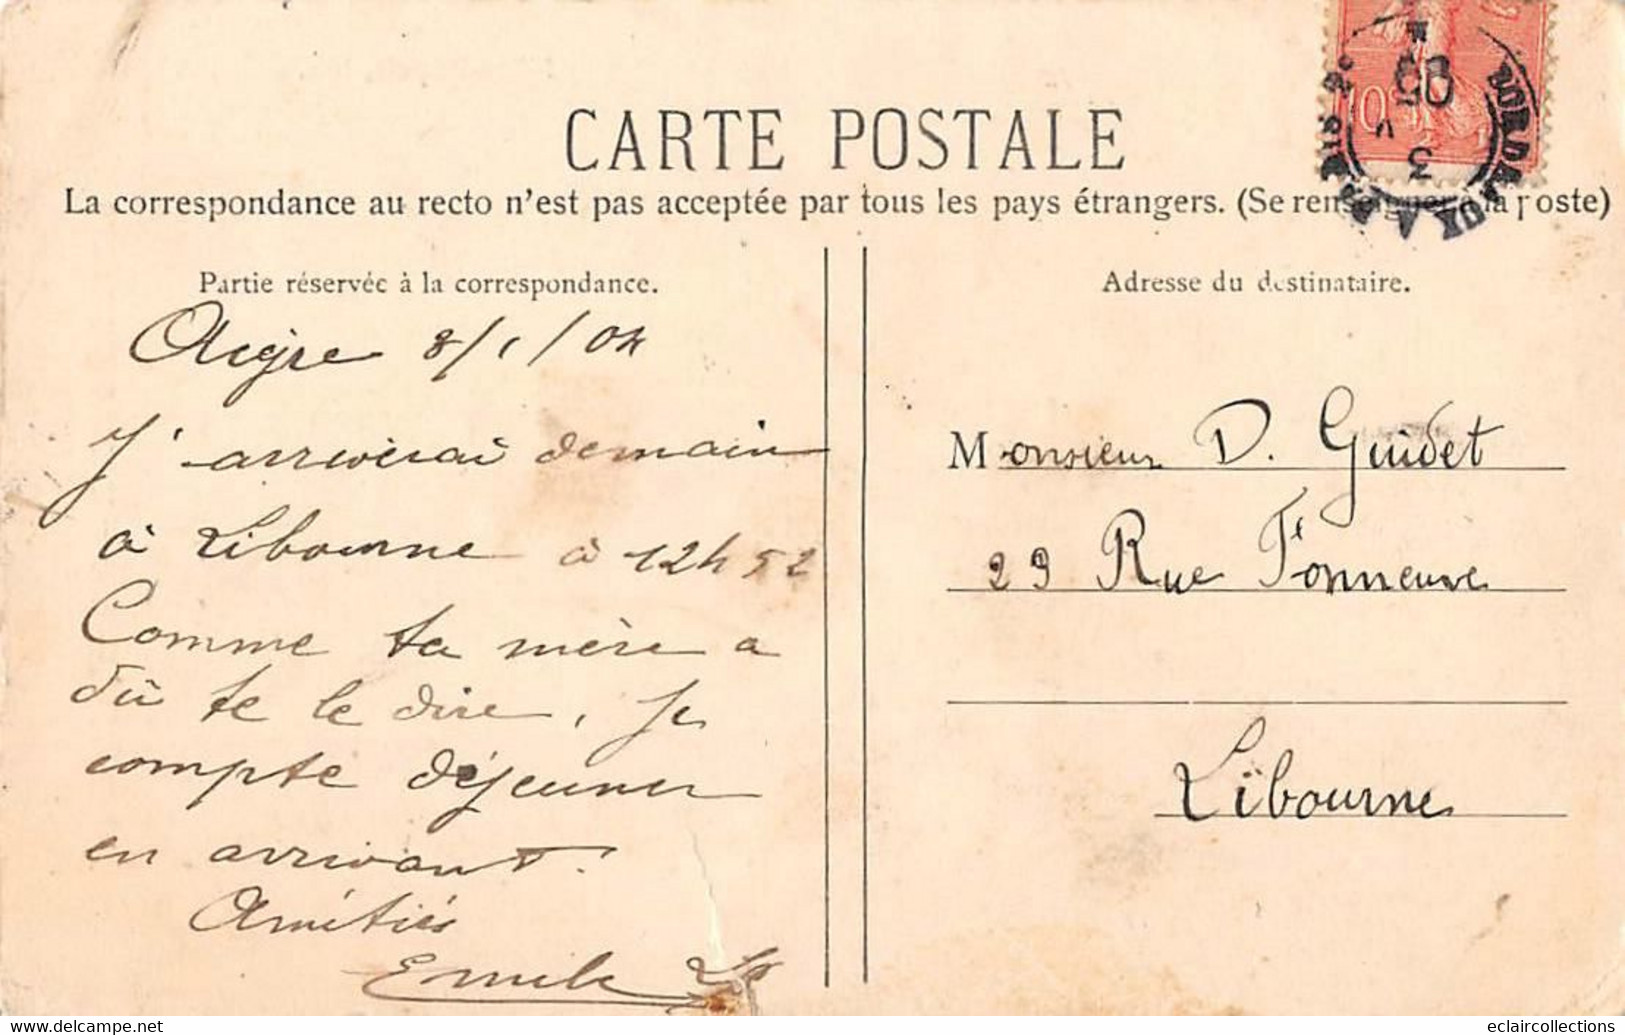 CARTE POSTALE
La correspondance au recto n'est pas acceptée par tous les pays étrangers. (Se renseigner à la poste)
Partie réservée à la correspondance.
Aigre 8/1/04
J'arriverai demain
à Libourne à 12h52
Comme ta mère a
dû te le dire, je
compte déjeuner
en arrivant.
Amitiés
Emile
Adresse du destinataire.
Monsieur D. Guidet
29 Rue Fonneuve
Libourne
10
BORDEAUX A PARIS 2°
3
05
eclaircollections